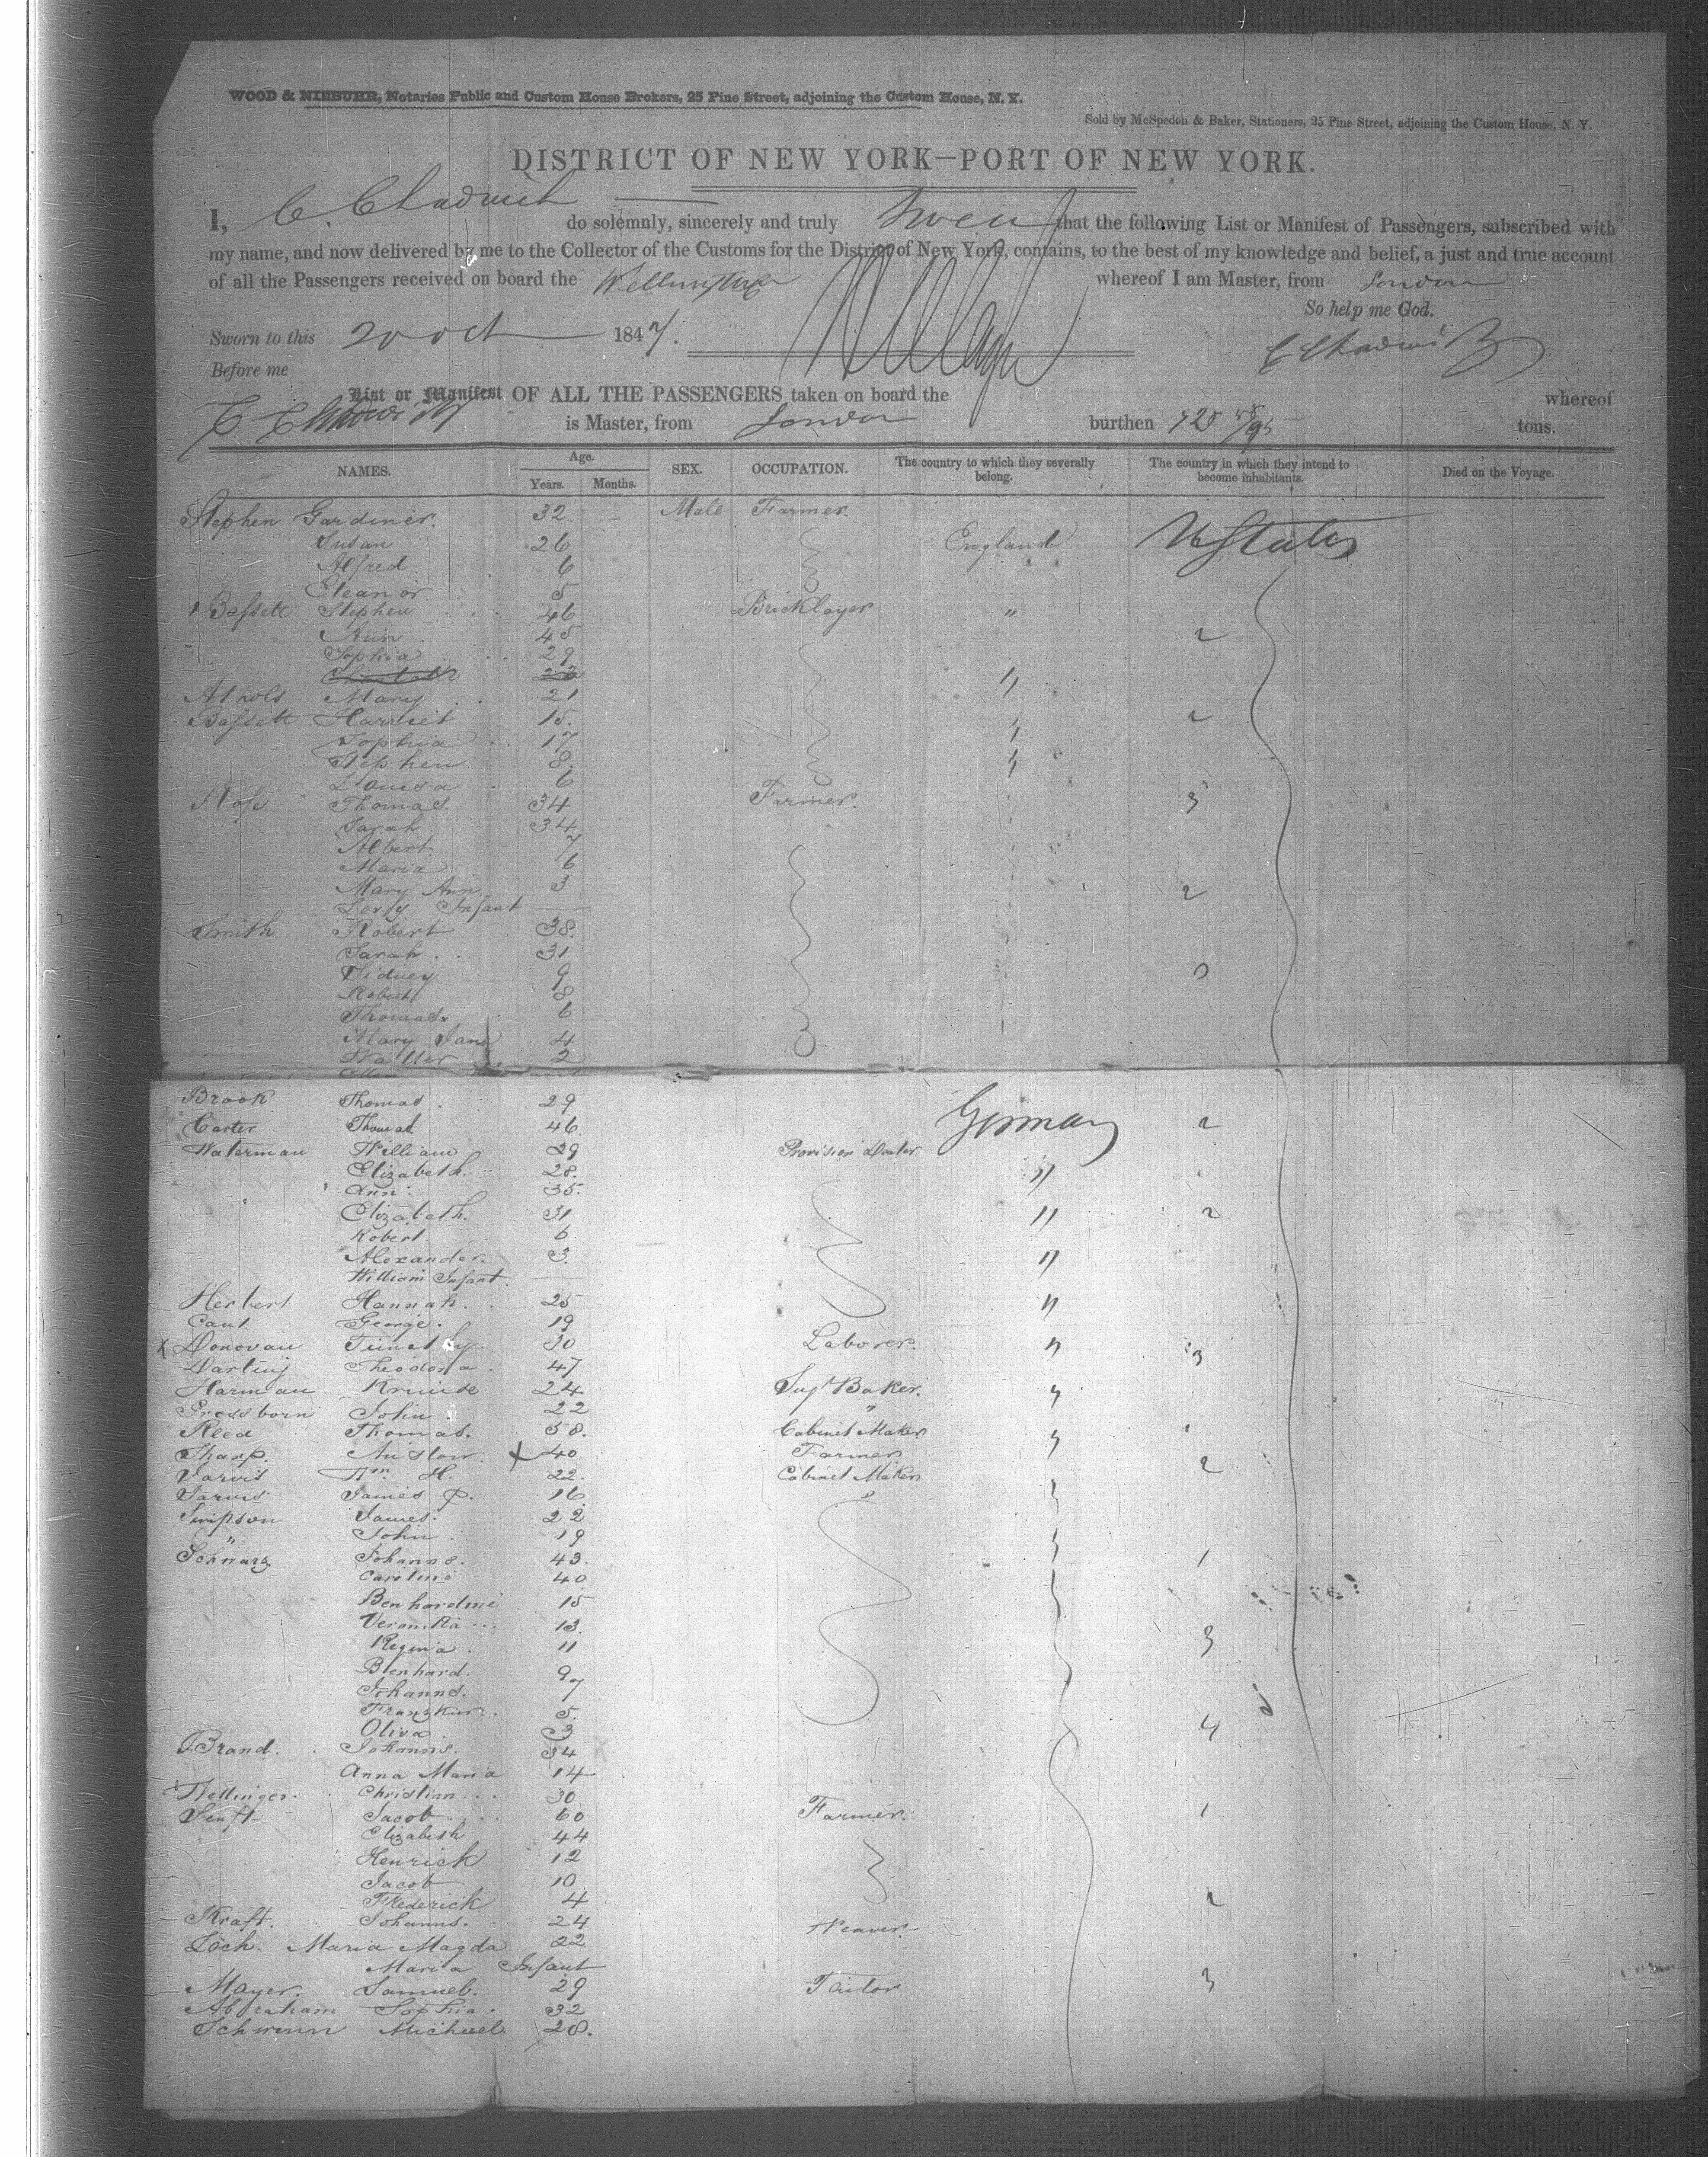 WOOD & NIEBUHR, Notaries Public and Custom House Brokers, 25 Pine Street, adjoining the Custom House, N. Y.
Sold by McSpedon & Baker, Stationers, 25 Pine Street, adjoining the Custom House, N. Y.
DISTRICT OF NEW YORK—PORT OF NEW YORK.
I, C. Chadwick do solemnly, sincerely and truly swear that the following List or Manifest of Passengers, subscribed with
my name, and now delivered by me to the Collector of the Customs for the District of New York, contains, to the best of my knowledge and belief, a just and true account
of all the Passengers received on board the Wellington whereof I am Master, from London
So help me God.
Sworn to this 20 oct 1847.
C Chadwick
Before me
List or Manifest OF ALL THE PASSENGERS taken on board the whereof
C Chadwick is Master, from London burthen 725 tons.
NAMES. Age. Years. Months. SEX. OCCUPATION. The country to which they severally belong. The country in which they intend to become inhabitants. Died on the Voyage.
Stephen Gardiner. 32 Male Farmer.
Susan 26 England U States
Alfred 6
Eleanor 5
Bassett Stephen 46 Bricklayer "
Ann 45 2
Sophia 29
"
Mary 21
Bassett Harriet 15. 2
Sophia 17 "
Stephen 8. "
Louisa 6
Ross Thomas. 34 Farmer. 3
Sarah 34
Albert 7
Maria 6
Mary Ann 3 2
Infant
Smith Robert 38.
Sarah 31
Sidney 9
Robert 8
Thomas 6
Mary Jane 4
Walter 2
Brook Thomas. 29 Germany
Carter Thomas 46 2
Waterman William 29 Provision Dealer
Elizabeth. 28. "
Ann 35.
Elizabeth. 31 " 2
Robert 6
Alexander. 3. "
William Infant.
Herbert Hannah. 25 "
Cant George. 19
X Donovan Timothy 30 Laborer. " 3
Darling Theodora 47
Harman Kruise 24 Sugr Baker. "
Pressborn John 22 "
Reed Thomas. 58. Cabinet Maker
Sharp. X 40 Farmer "
Jarvis Wm H. 22. Cabinet Maker 2
Jarvis James P. 16
Simpson James. 22
" John 19
Schwarz Johanns. 43. 1
Caroline 40
Benhardine 15
Veronika 13.
Regina 11 3
Benhard. 9
Johanns. 7
5.
Oliva 3 4
Brand. Johanns. 34
Anna Maria 14
Christian 30
Senft Jacob 60 Farmer. 1
Elizabeth 44
Henrick 12
Jacob 10
Frederick 4 2
Kraft. Johanns. 24 Weaver.
Loch. Maria Magda 22
Maria Infant
Mayer. Samuel. 29 Tailor 3
Abraham Sophia. 32
Schwinn Michael 28.